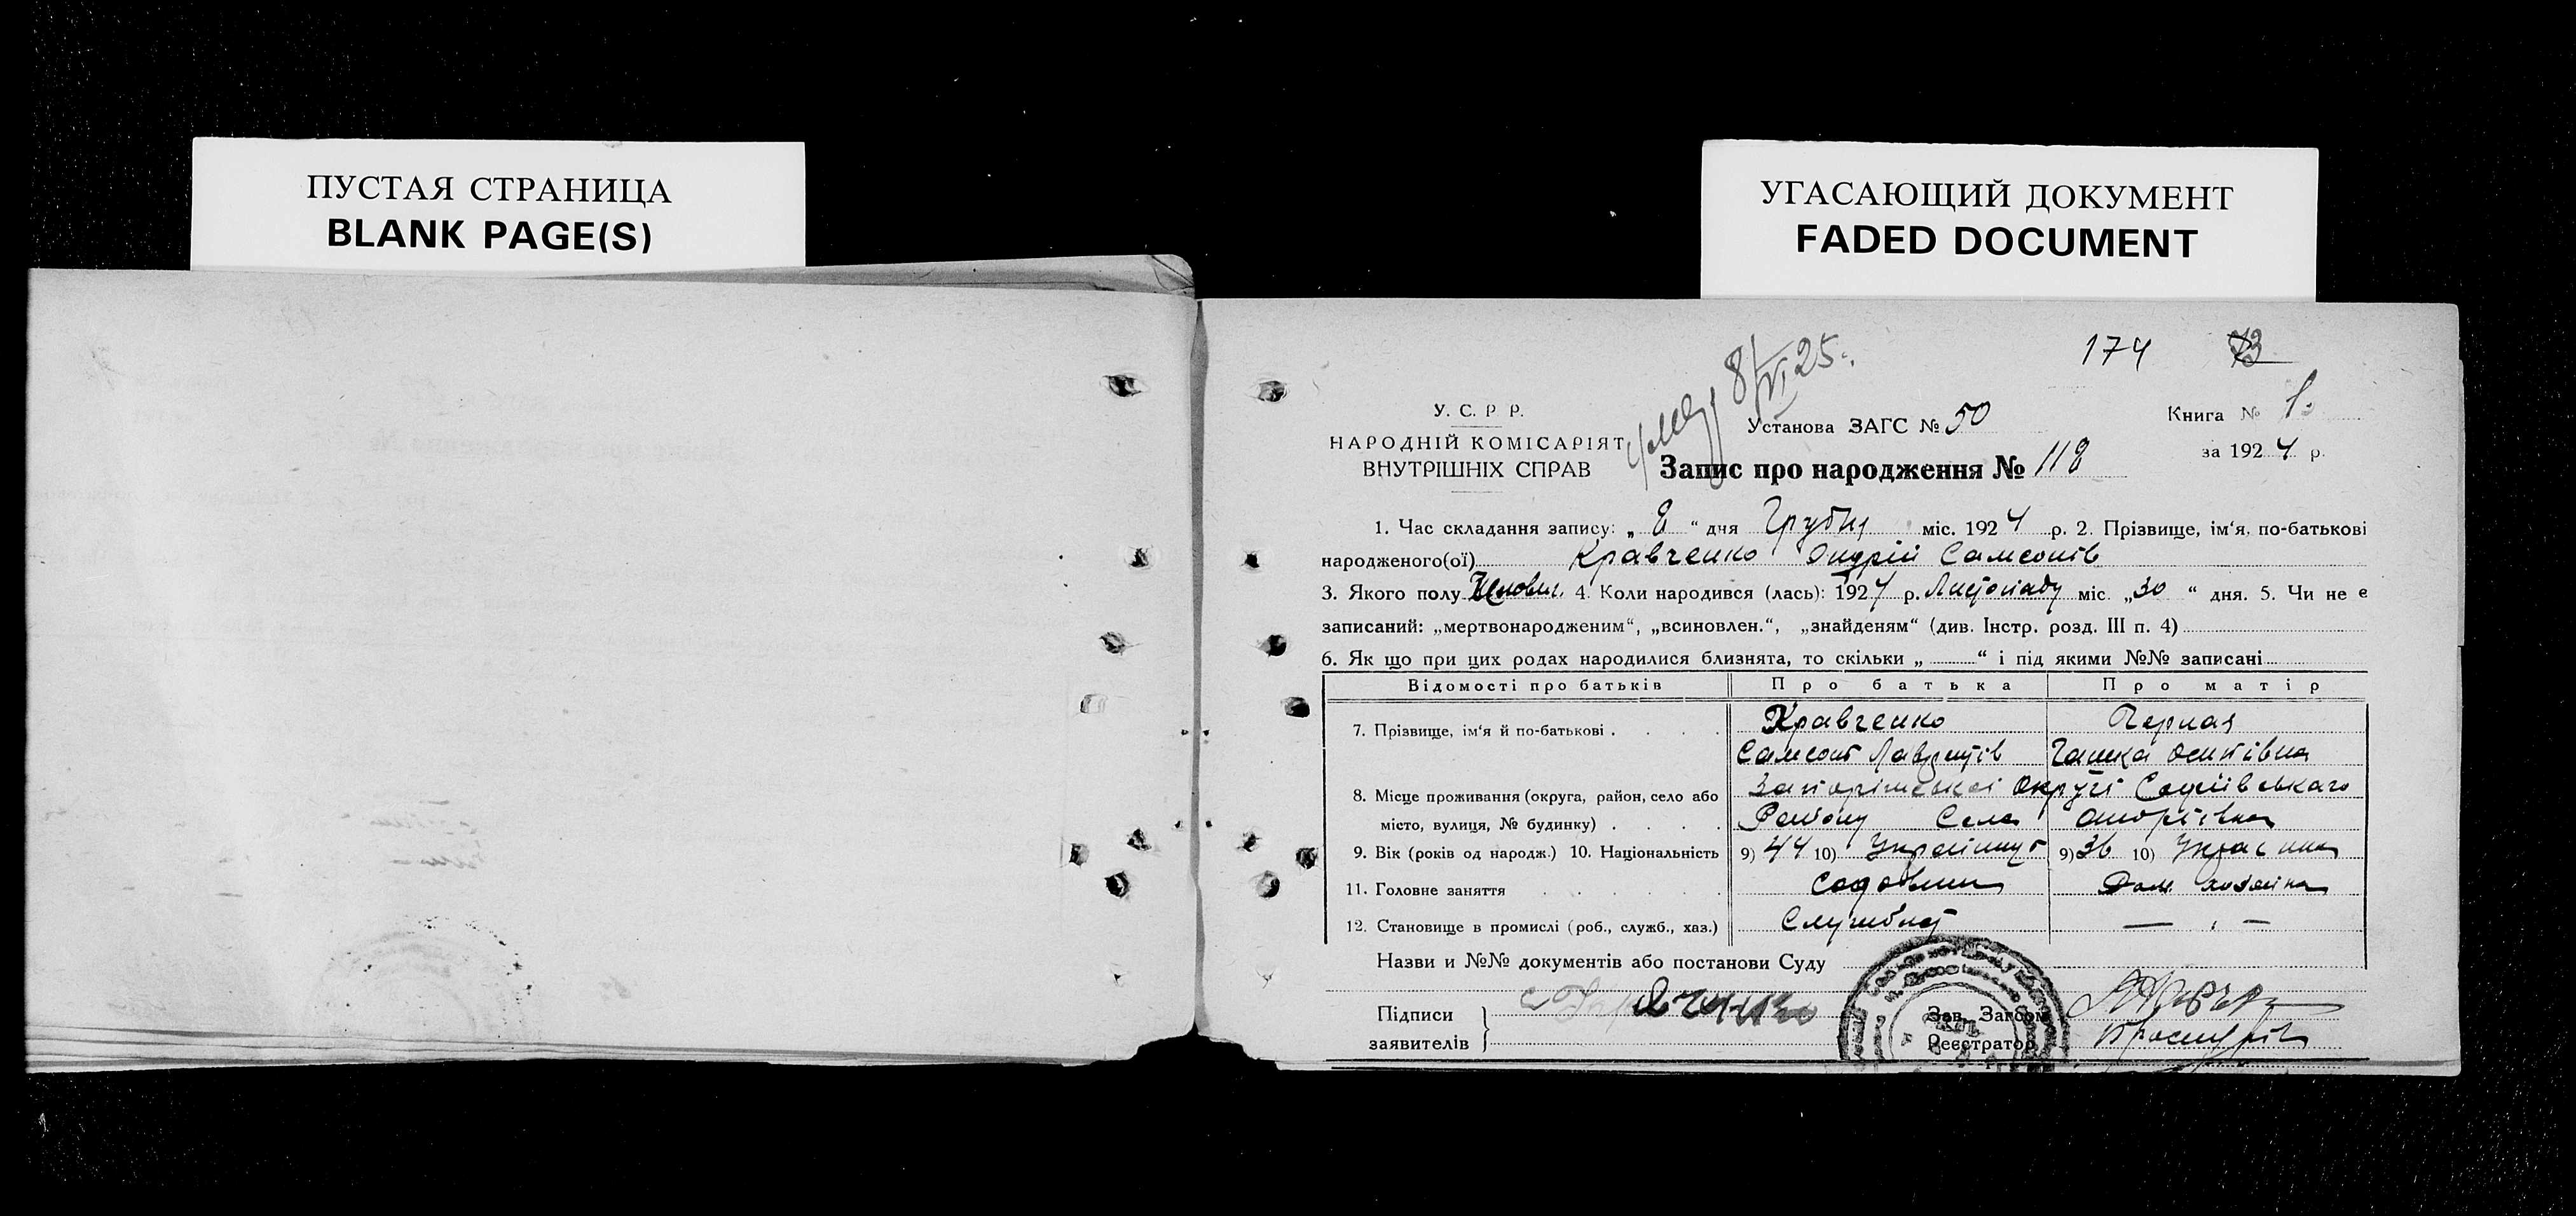 ПУСТАЯ СТРАНИЦА
BLANK PAGE(S)
УГАСАЮЩИЙ ДОКУМЕНТ
FADED DOCUMENT
174 73
8/VI 25.
У. С. Р. Р.
НАРОДНІЙ КОМІСАРІЯТ
ВНУТРІШНІХ СПРАВ
Установа ЗАГС № 50
Книга № 1
за 1924 р.
Запис про народження № 118
1. Час складання запису: „ 8 “ дня Грудня міс. 1924 р. 2. Прізвище, ім‘я, по-батькові
народженого(ої) Кравченко Андрій Самсонів
3. Якого полу Чоловіч. 4. Коли народився (лась): 1924 р. Листопаду міс. „30 “ дня. 5. Чи не є
записаний: „мертвонародженим“, „всиновлен.“, „знайденям“ (див. Інстр. розд. III п. 4)
6. Як що при цих родах народилися близнята, то скільки „ “ і під якими №№ записані
Відомості про батьків Про батька Про матір
7. Прізвище, ім‘я й по-батькові . . . . Кравченко Черная
Самсон Лаврентів Ганка Осипівна
8. Місце проживання (округа, район, село або Запоріжської Округі Софіівського
місто, вулиця, № будинку) . . . . Району Села
9. Вік (років од народж.) 10. Національність 9) 44 10) Українець 9) 36 10) Українка
11. Головне заняття . . . . . . Садовник Дом. хозяйка
12. Становище в промислі (роб., служб., хаз.) Службов. — „ —
Назви и №№ документів або постанови Суду
Підписи
заявителів
С Кравченко
Зав. Загсом
Реєстратор